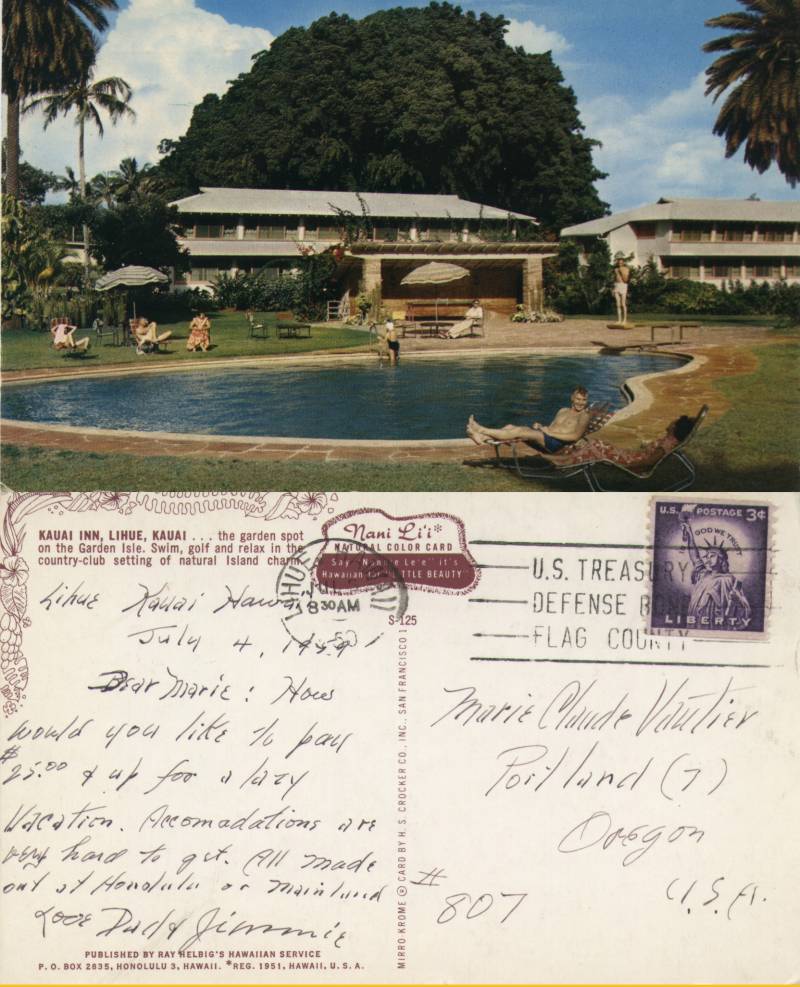 KAUAI INN, LIHUE, KAUAI . . . the garden spot
on the Garden Isle. Swim, golf and relax in the
country-club setting of natural Island charm.
Nani Li'i*
NATURAL COLOR CARD
Say "Nannie Le'e" it's
Hawaiian for "LITTLE BEAUTY"
S-125
LIHUE
830AM
U.S. TREASURY
DEFENSE BON
FLAG COUNTY
U.S. POSTAGE 3¢
IN GOD WE TRUST
LIBERTY
Lihue Kauai Hawaii
July 4, 1959
Dear Marie: Hows
would you like to pay
$25.00 & up for a lazy
Vacation. Accomadations are
very hard to get. All made
out at Honolulu or Mainland
Love Dad Jimmie
Marie Claude Vautier
Portland (7)
Oregon
U.S.A.
#
807
MIRRO-KROME ® CARD BY H. S. CROCKER CO., INC., SAN FRANCISCO 1
PUBLISHED BY RAY HELBIG'S HAWAIIAN SERVICE
P. O. BOX 2835, HONOLULU 3, HAWAII. *REG. 1951, HAWAII, U. S. A.